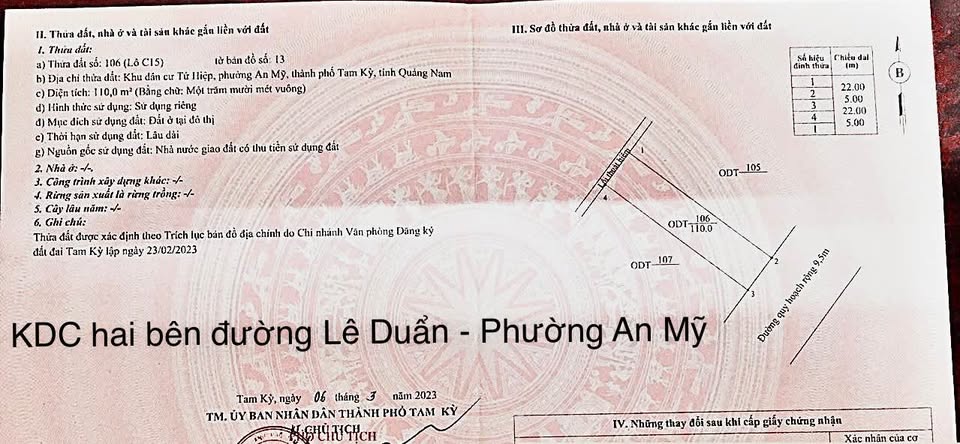 II. Thửa đất, nhà ở và tài sản khác gắn liền với đất
1. Thửa đất:
a) Thửa đất số: 106 (Lô C15) tờ bản đồ số: 13
b) Địa chỉ thửa đất: Khu dân cư Tứ Hiệp, phường An Mỹ, thành phố Tam Kỳ, tỉnh Quảng Nam
c) Diện tích: 110,0 m² (Bằng chữ: Một trăm mười mét vuông)
d) Hình thức sử dụng: Sử dụng riêng
đ) Mục đích sử dụng đất: Đất ở tại đô thị
e) Thời hạn sử dụng đất: Lâu dài
g) Nguồn gốc sử dụng đất: Nhà nước giao đất có thu tiền sử dụng đất
2. Nhà ở: -/-.
3. Công trình xây dựng khác: -/-
4. Rừng sản xuất là rừng trồng: -/-
5. Cây lâu năm: -/-
6. Ghi chú:
Thửa đất được xác định theo Trích lục bản đồ địa chính do Chi nhánh Văn phòng Đăng ký
đất đai Tam Kỳ lập ngày 23/02/2023
III. Sơ đồ thửa đất, nhà ở và tài sản khác gắn liền với đất
Số hiệu đỉnh thửa Chiều dài (m)
1
22.00
2
5.00
3
22.00
4
5.00
1
B
Lối thoát hiểm
1
ODT 105
4
ODT 106 110.0
ODT 107
2
3
Đường quy hoạch rộng 9.5m
KDC hai bên đường Lê Duẩn - Phường An Mỹ
Tam Kỳ, ngày 06 tháng 3 năm 2023
TM. ỦY BAN NHÂN DÂN THÀNH PHỐ TAM KỲ
CHỦ TỊCH
PHÓ CHỦ TỊCH
IV. Những thay đổi sau khi cấp giấy chứng nhận
Xác nhận của cơ